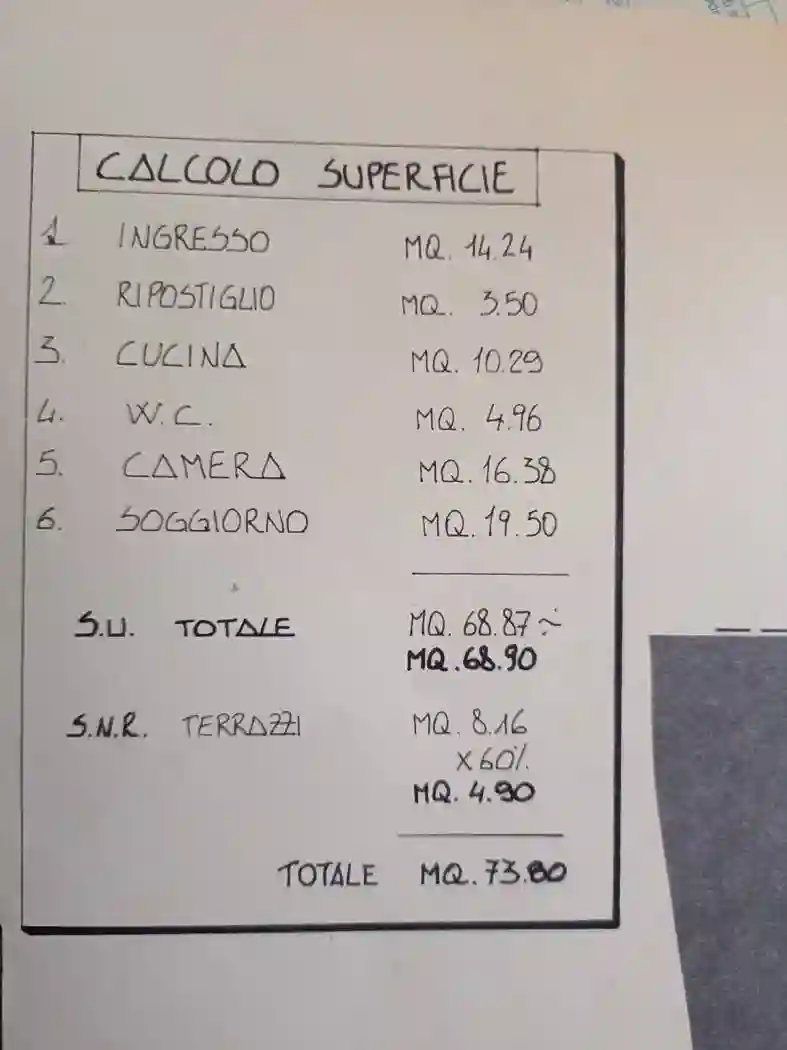 CALCOLO SUPERFICIE
1 INGRESSO MQ. 14.24
2. RIPOSTIGLIO MQ. 3.50
3. CUCINA MQ. 10.29
4. W.C. MQ. 4.96
5. CAMERA MQ. 16.38
6. SOGGIORNO MQ. 19.50
S.U. TOTALE MQ. 68.87 ~
MQ. 68.90
S.N.R. TERRAZZI MQ. 8.16
X 60%
MQ. 4.90
TOTALE MQ. 73.80